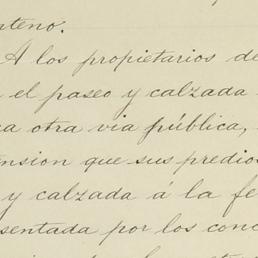 nteno.
A los propietarios de
el paseo y calzada
a otra via pública,
ension que sus predios
y calzada á la fe
sentada por los conc